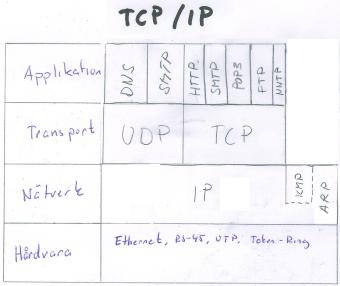 TCP/IP
Applikation DNS SMTP HTTP SMTP POP3 FTP NNTP
Transport UDP TCP
Nätverk IP ICMP ARP
Hårdvara Ethernet, RS-45, UTP, Token-Ring